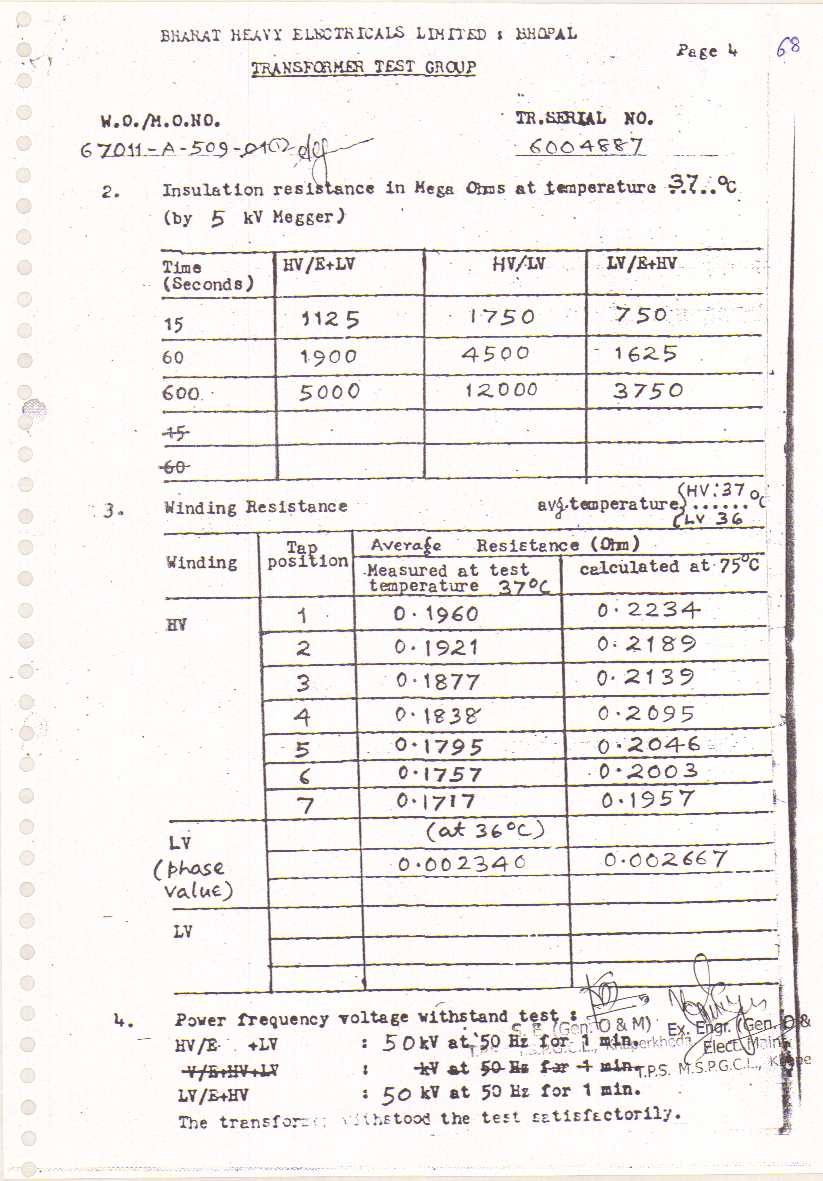 BHARAT HEAVY ELECTRICALS LIMITED : BHOPAL
Page 4 68
TRANSFORMER TEST GROUP
W.O./M.O.NO. TR.SERIAL NO.
67011-A-509-01 6004887
2. Insulation resistance in Mega Ohms at temperature 37..°C
(by 5 kV Megger)
Time (Seconds) HV/E+LV HV/LV LV/E+HV
15 1125 1750 750
60 1900 4500 1625
600 5000 12000 3750
15
60
3. Winding Resistance avg.temperature HV:37 ......°C LV 36
Winding Tap position Average Resistance (Ohm)
Measured at test temperature 37°C calculated at 75°C
HV 1 0.1960 0.2234
2 0.1921 0.2189
3 0.1877 0.2139
4 0.1838 0.2095
5 0.1795 0.2046
6 0.1757 0.2003
7 0.1717 0.1957
LV (at 36°C)
(phase value) 0.002340 0.002667
LV
4. Power frequency voltage withstand test :
HV/E +LV : 50 kV at 50 Hz for 1 min.
V/E+HV+LV : kV at 50 Hz for 1 min.
LV/E+HV : 50 kV at 50 Hz for 1 min.
The transformer withstood the test satisfactorily.
S. E. (Gen. O & M)
Ex. Engr. (Gen. O &
Elect. Main
T.P.S. M.S.P.G.C.L.,